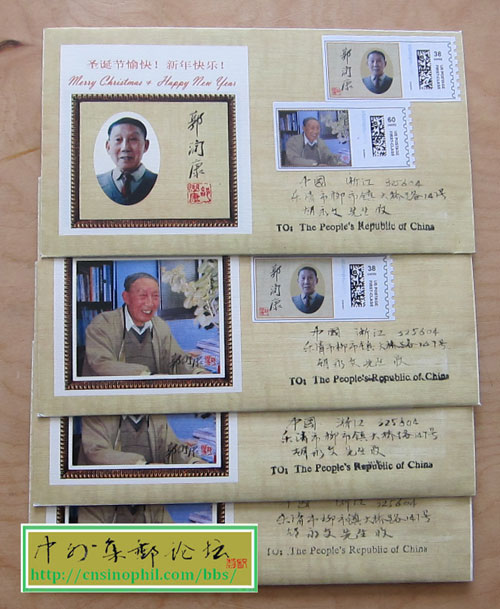 圣诞节愉快！新年快乐！
Merry Christmas + Happy New Year
郭润康
郭润康
38
US POSTAGE
FIRST-CLASS
60
US POSTAGE
FIRST-CLASS
中国 浙江 325604
乐清市柳市镇大桥路147号
胡永文先生收
TO: The People's Republic of China
郭润康
郭润康
38
US POSTAGE
FIRST-CLASS
中国 浙江 325604
乐清市柳市镇大桥路147号
胡永文先生收
TO: The People's Republic of China
郭润康
中国 浙江 325604
乐清市柳市镇大桥路147号
胡永文先生收
TO: The People's Republic of China
中国 浙江 325604
乐清市柳市镇大桥路147号
胡永文先生收
TO: The People's Republic of China
中外集邮论坛
http://cnsinophil.com/bbs/